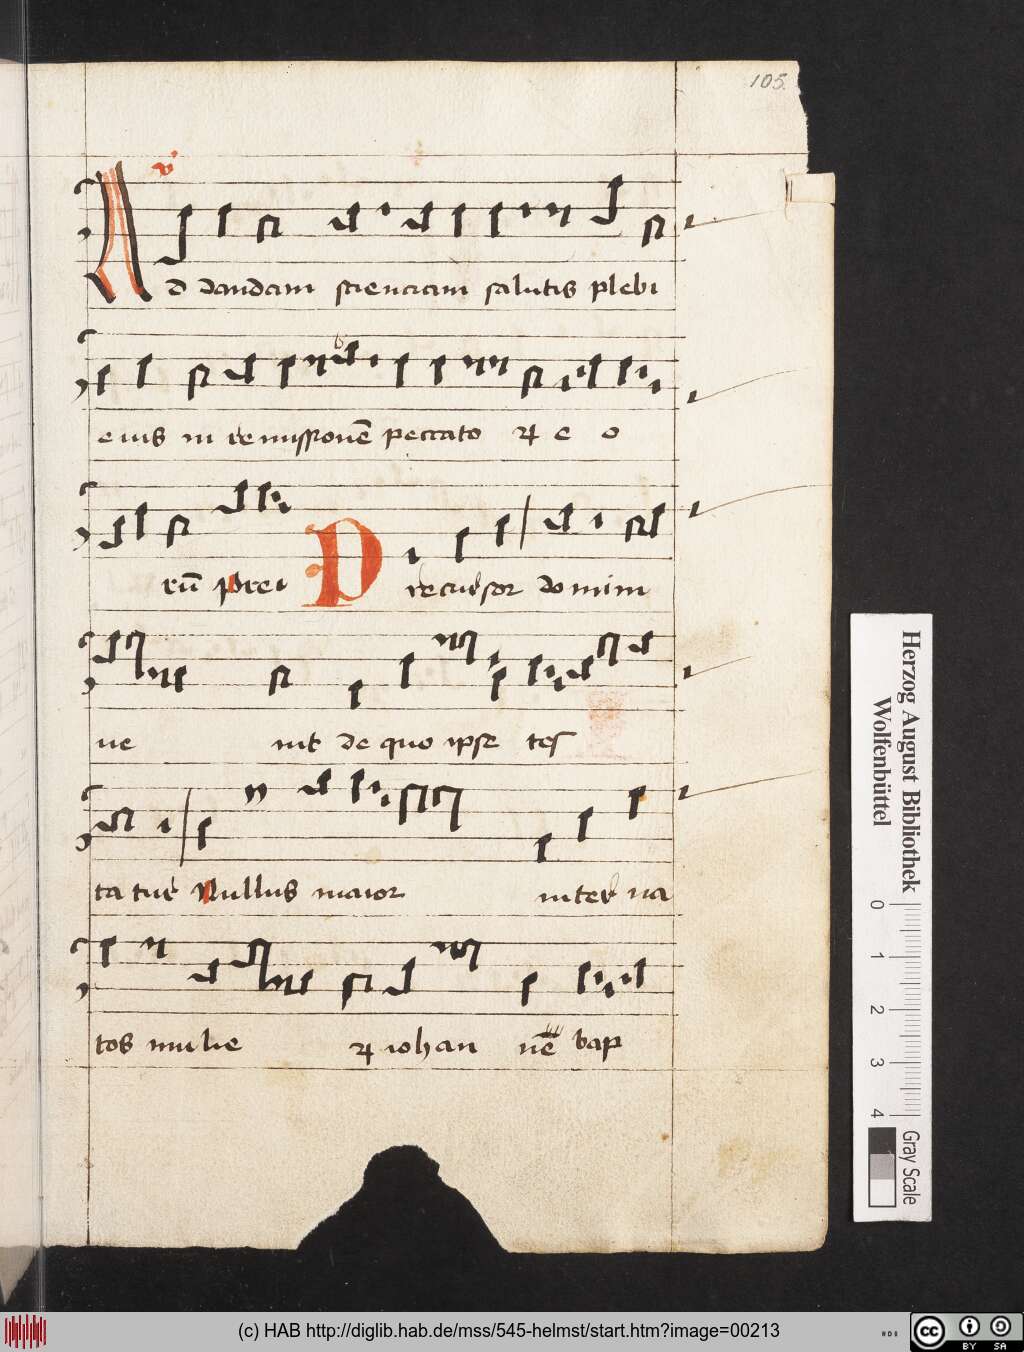 105.
v
Ad dandam scienciam salutis plebi
eius in remissionē peccato ꝝ e o
rū p̄rei Precursor domini
ue nit de quo ipse tes
ta tur Nullus maior inter na
tos mulie ꝝ iohan nē bap
Herzog August Bibliothek
Wolfenbüttel
0 1 2 3 4
Gray Scale
(c) HAB http://diglib.hab.de/mss/545-helmst/start.htm?image=00213
cc BY SA